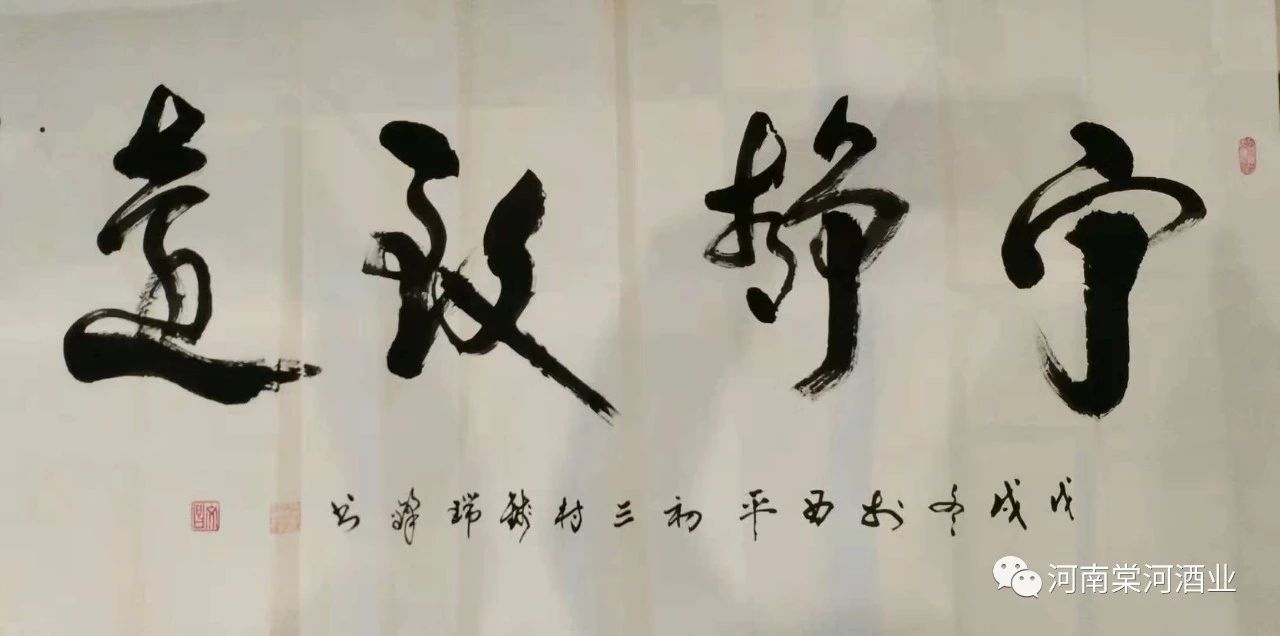 宁静致远
戊戌冬于西平初三村
瑞锋书
河南棠河酒业